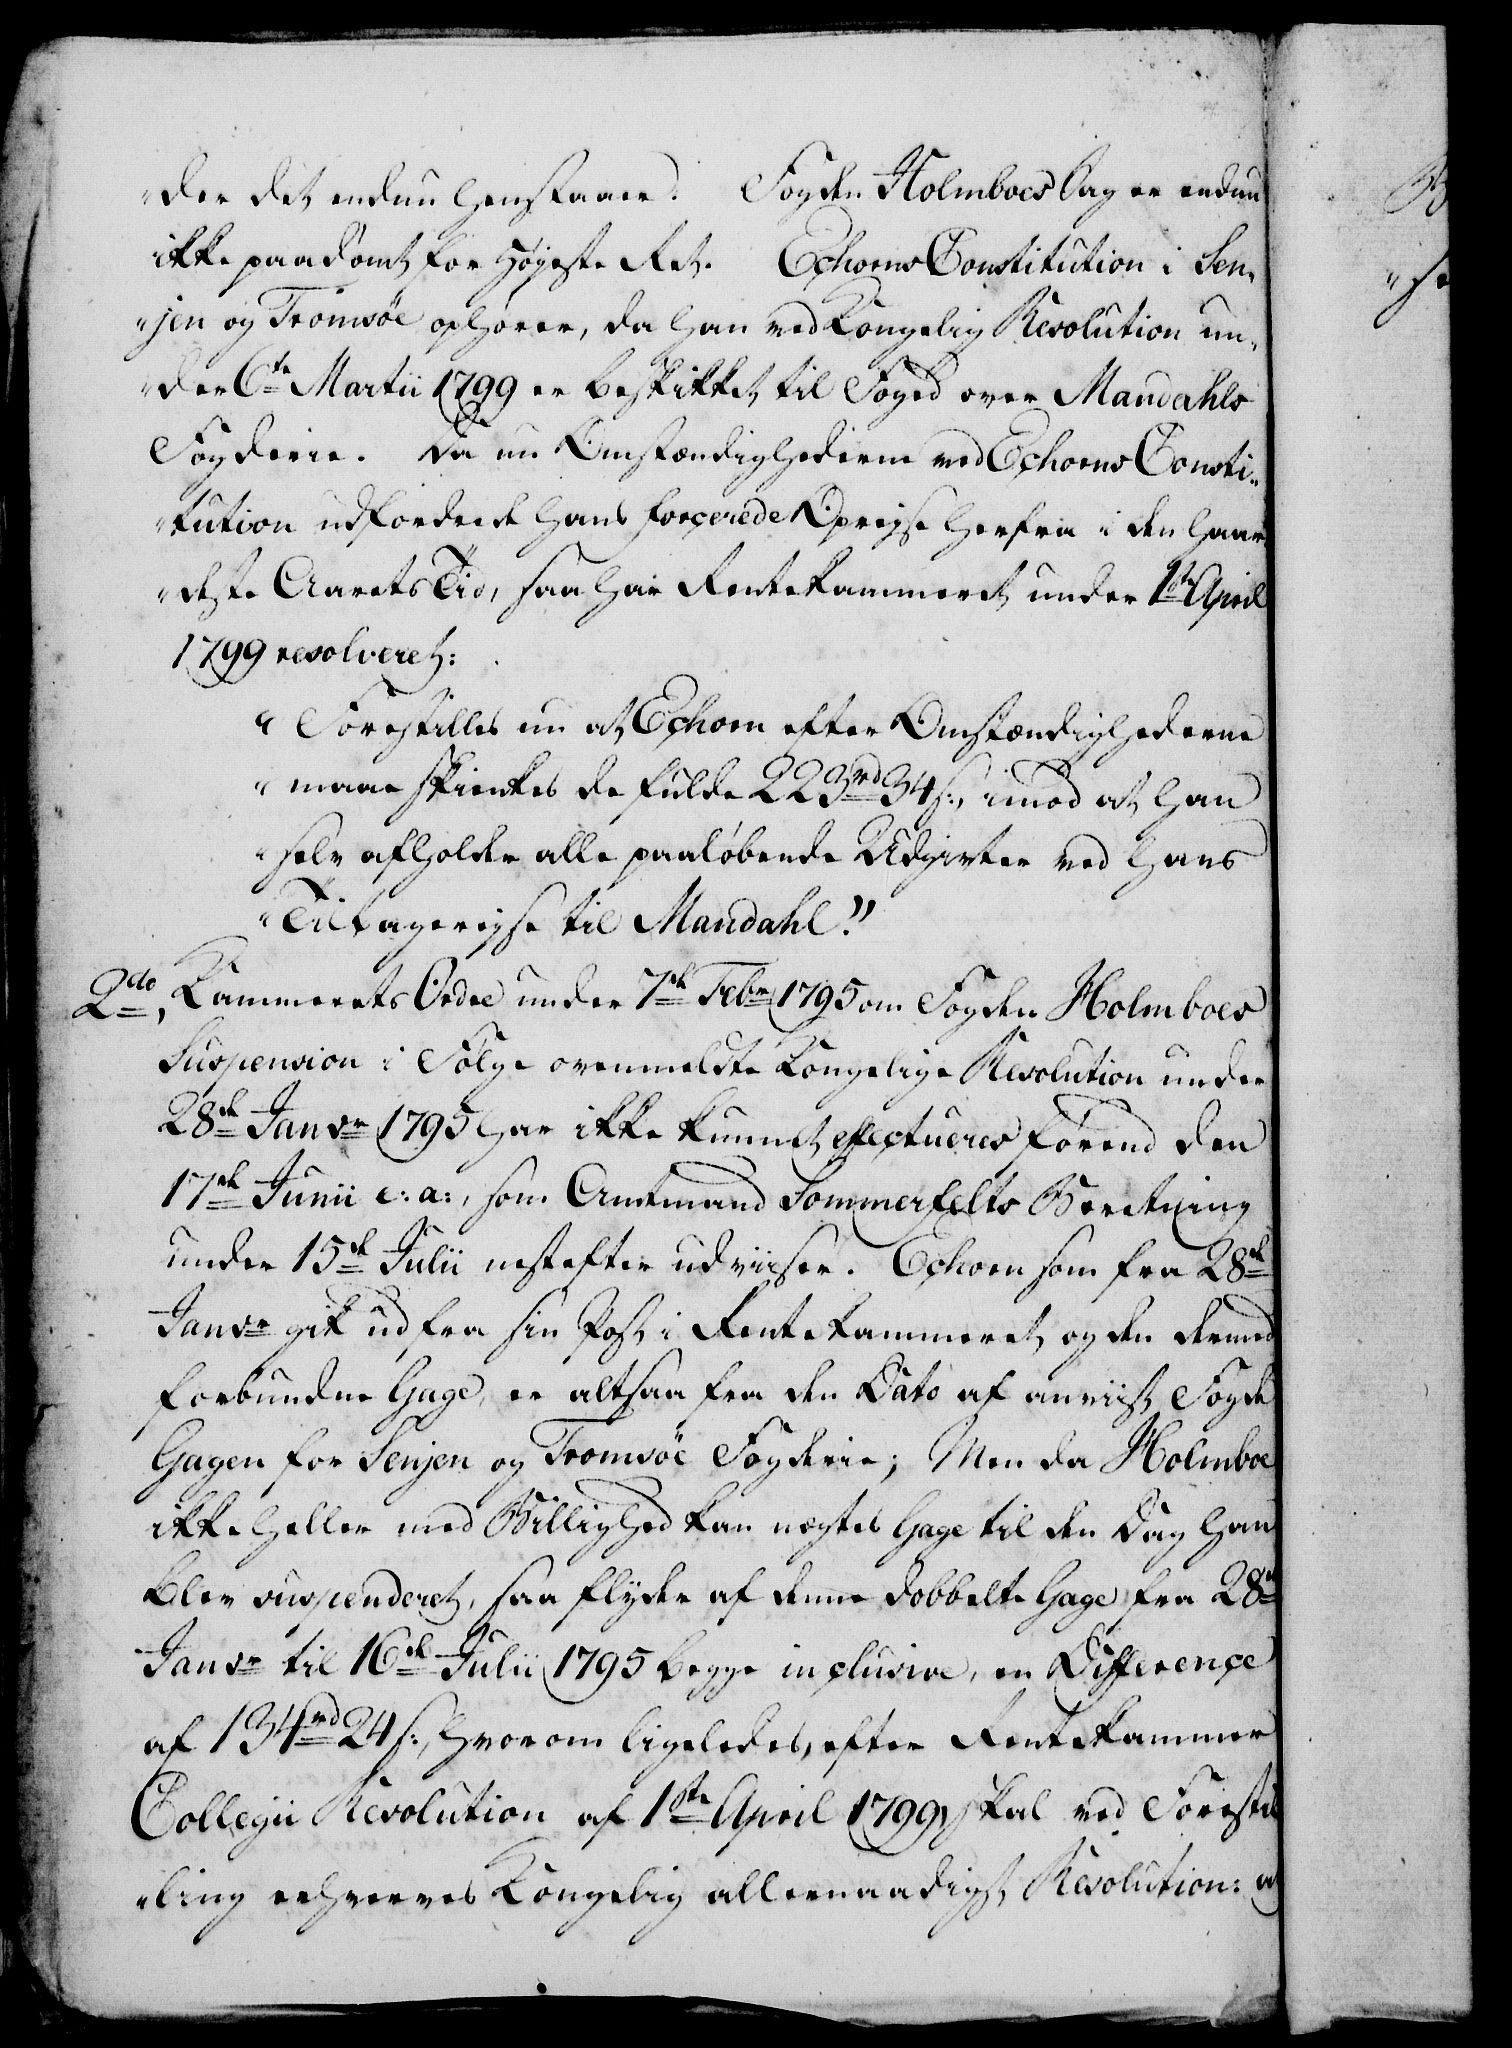 "der det endnu henstaaer. Fogden Holmboes Sag er endnu
ikke paadömt for Höjeste Ret. Echorns Constitution i Sen"
"jen og Tromsöe ophörer, da han ved Kongelig Resolution un"
"der 6te Martii 1799 er beskikket til Foged over Mandahls
Fogderie. Da nu Omstændighederne ved Echorns Consti"
"tution udfordrede hans forcerede Oprejse herfra i den haar
"deste Aarets Tid, saa har Rentekammeret under 1ste April
1799 resolveret:
"Forestilles nu at Echorn efter Omstændighederne
"maae skienkes de fulde 223rd 34s:, imod at han
"selv afholder alle paalöbende Udgivter ved hans
"Tilbagerejse til Mandahl."
2do, Kammerets Ordre under 7de Febr 1795 om Fogden Holmboes
Suspension i Fölge ovenmeldte Kongelige Resolution under
28de Janvr 1795 har ikke kunnet effectueres förend den
17de Junii e: a:, som Amtmand Sommerfelts Beretning
under 15de Julii nestefter udviiser. Echorn som fra 28de
Janvr gik ud fra sin Post i Rentekammeret, og den dermed
forbundne Gage, er altsaa fra den Dato af anviist Fogde
Gagen for Senjen og Tromsöe Fogderie; Men da Holmboe
ikke heller med Billighed kan nægtes Gage til den Dag han
blev suspenderet, saa flyder af denne dobbelte Gage fra 28de
Janvr til 16de Julii 1795 begge inclusive, en Difference
af 134rd 24s:, hvorom ligeledes, efter Rentekammer
Collegii Resolution af 1ste April 1799, skal ved Forestil
"ling erhverves Kongelig allernaadigst Resolution: at